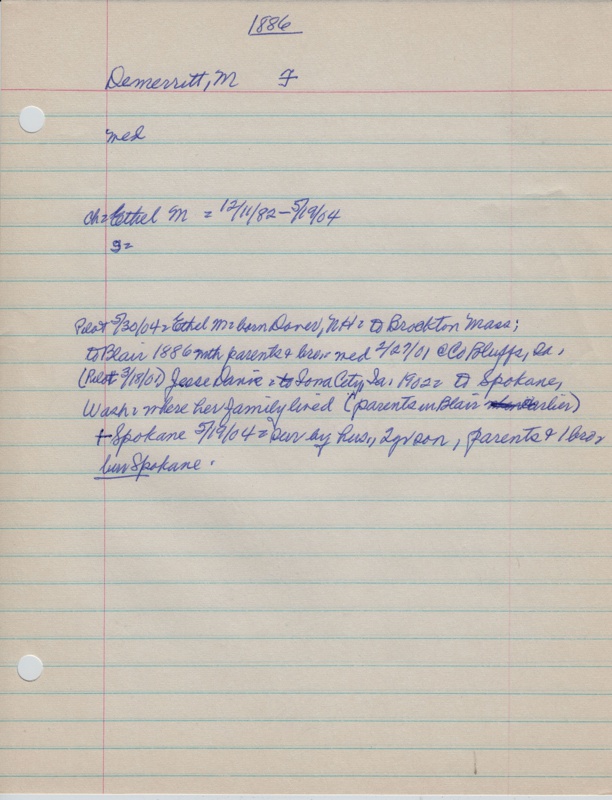 1886
Demerritt, M F
med
ch = Ethel M = 12/11/82 - 5/19/04
g =
Pilot 5/30/04 = Ethel M = born Dover, NH = to Brockton Mass;
to Blair 1886 with parents & bro = med 2/27/01 @ Co Bluffs, Ia.
(Pilot 3/18/01) Jesse Davis = to Iowa City, Ia. 1902 = to Spokane,
Wash = where her family lived (parents in Blair earlier)
+ Spokane 5/19/04 = sur by hus., 2 yr son, parents & 1 bro =
bur Spokane.